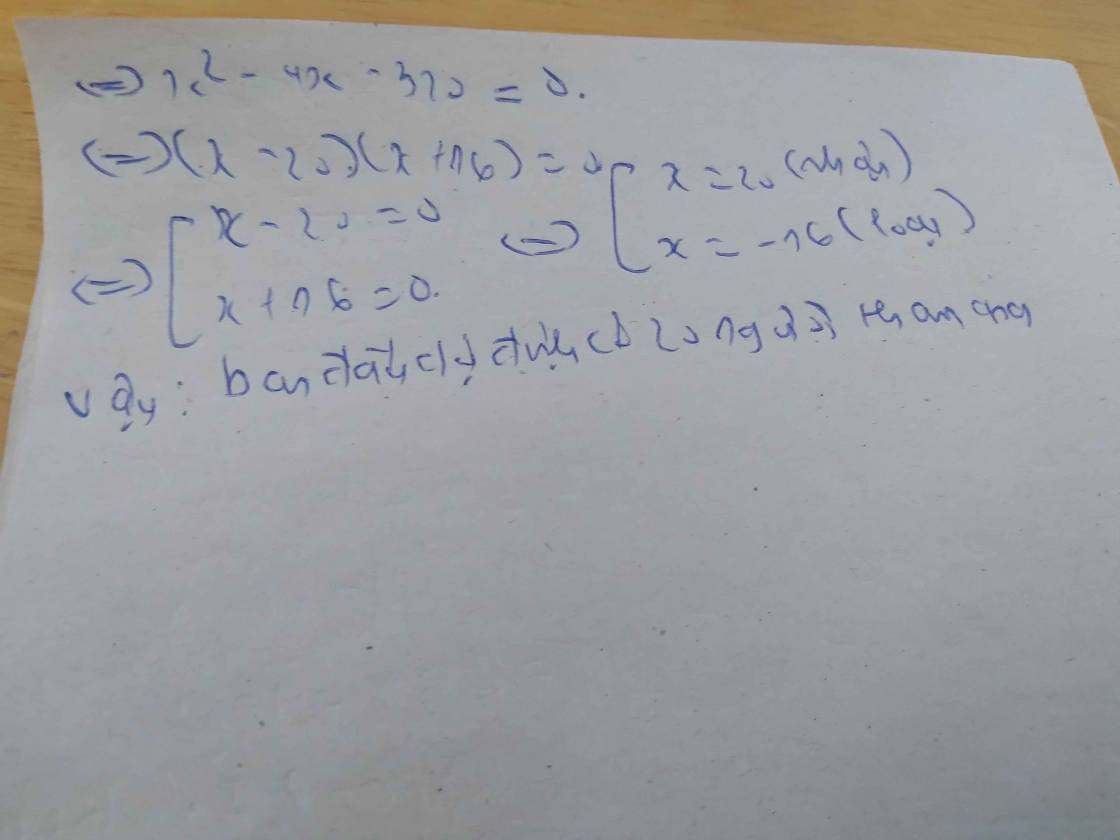 ⇔ x² - 4x - 320 = 0.
⇔ (x - 20)(x + 16) = 0
⇔ [ x - 20 = 0 ⇔ [ x = 20 (nhận)
x + 16 = 0. x = -16 (loại)
Vậy: ban đầu dự định có 20 người tham gia